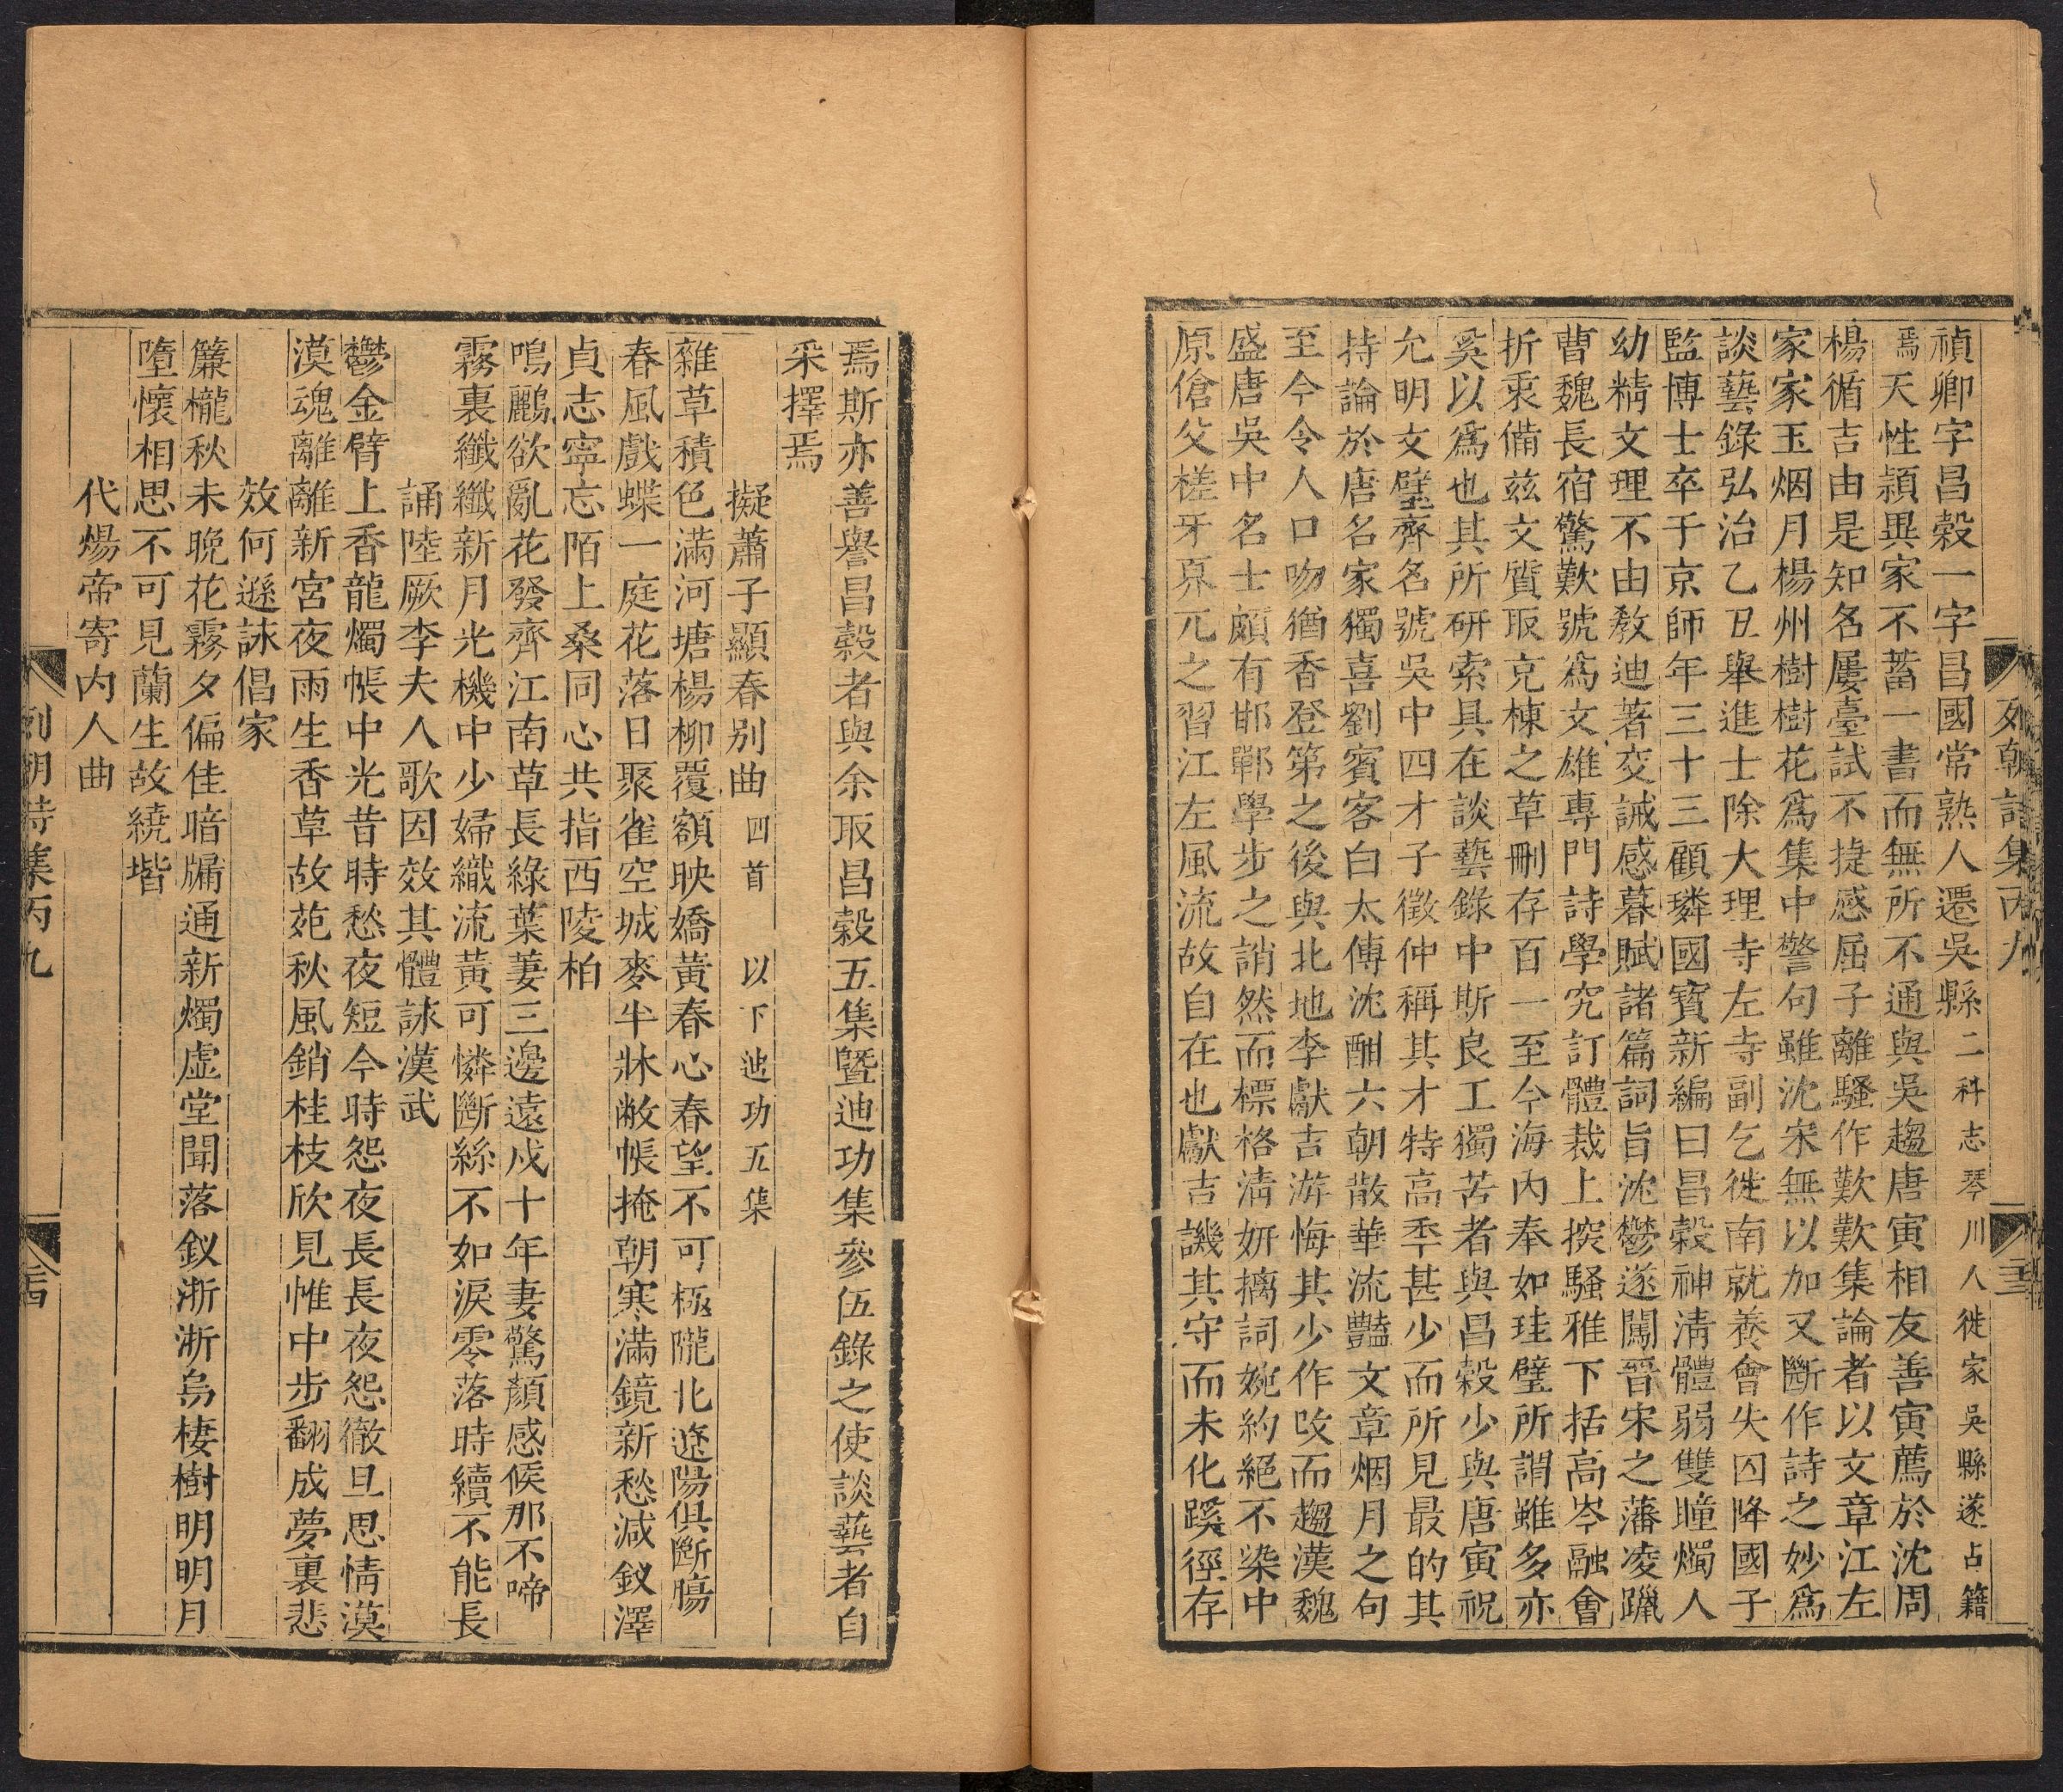 列朝詩集丙九
禎卿字昌穀一字昌國常熟人遷吳縣二科志琴川人徙家吳縣遂占籍
焉天性穎異家不蓄一書而無所不通與吳趨唐寅相友善寅薦於沈周
楊循吉由是知名屢臺試不捷感屈子離騷作歎歎集論者以文章江左
家家玉烟月楊州樹樹花爲集中警句雖沈宋無以加又斷作詩之妙爲
談藝錄弘治乙丑舉進士除大理寺左寺副乞徙南就養會失囚降國子
監博士卒于京師年三十三顧璘國寶新編曰昌穀神淸體弱雙瞳燭人
幼精文理不由敎迪著交誡感暮賦諸篇詞旨沈鬱遂闖晉宋之藩凌躐
曹魏長宿驚歎號爲文雄專門詩學究訂體裁上探騷雅下括高岑融會
折衷備茲文質取克棟之草刪存百一至今海内奉如珪璧所謂雖多亦
奚以爲也其所研索具在談藝錄中斯良工獨苦者與昌穀少與唐寅祝
允明文壁齊名號吳中四才子徵仲稱其才特高年甚少而所見最的其
持論於唐名家獨喜劉賓客白太傅沈酣六朝散華流豔文章烟月之句
至今令人口吻猶香登第之後與北地李獻吉游悔其少作攺而趨漢魏
盛唐吳中名士頗有邯鄲學步之誚然而標格淸妍摛詞婉約絕不染中
原傖父槎牙奡兀之習江左風流故自在也獻吉譏其守而未化蹊徑存
焉斯亦善譽昌穀者與余取昌穀五集暨迪功集參伍錄之使談藝者自
采擇焉
擬蕭子顯春別曲四首　以下迪功五集
雜草積色滿河塘楊柳覆額映嬌黃春心春望不可極隴北遼陽俱斷腸
春風戲蝶一庭花落日聚雀空城麥半牀敝帳掩朝寒滿鏡新愁減釵澤
貞志寧忘陌上桑同心共指西陵柏
鳴鸝欲亂花發齊江南草長綠葉萋三邊遠戍十年妻驚顏感候那不啼
霧裏纖纖新月光機中少婦織流黃可憐斷絲不如淚零落時續不能長
誦陸厥李夫人歌因效其體詠漢武
鬱金臂上香龍燭帳中光昔時愁夜短今時怨夜長長夜怨徹旦思情漠
漠魂離離新宮夜雨生香草故苑秋風銷桂枝欣見惟中步翻成夢裏悲
效何遜詠倡家
簾櫳秋未晚花霧夕偏佳暗牖通新燭虛堂聞落釵淅淅烏棲樹明明月
墮懷相思不可見蘭生故繞堦
代煬帝寄内人曲
列朝詩集丙九